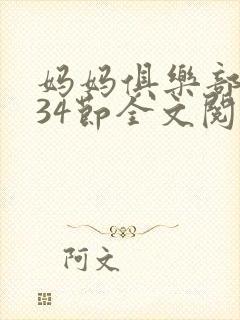 妈妈俱樂部
34節全文閱
阿文